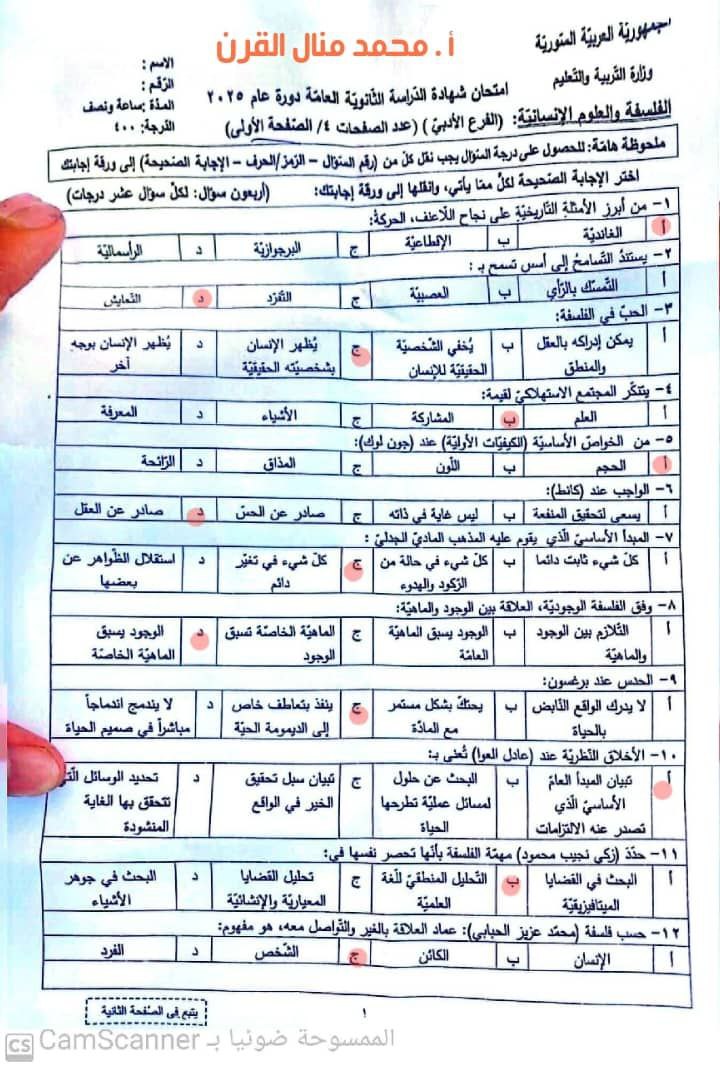 أ. محمد منال القرن
الجمهوريّة العربيّة السّوريّة
وزارة التّربية والتّعليم
امتحان شهادة الدّراسة الثّانويّة العامّة دورة عام ٢٠٢٥
الفلسفة والعلوم الإنسانيّة: (الفرع الأدبيّ) (عدد الصفحات ٤/ الصّفحة الأولى)
الاسم :
الرّقم :
المدّة : ساعة ونصف
الدّرجة: ٤٠٠
ملحوظة هامّة: للحصول على درجة السّؤال يجب نقل كلّ من (رقم السّؤال – الرّمز/الحرف – الإجابة الصّحيحة) إلى ورقة إجابتك
اختر الإجابة الصّحيحة لكلّ ممّا يأتي، وانقلها إلى ورقة إجابتك: (أربعون سؤال: لكلّ سؤال عشر درجات)
١- من أبرز الأمثلة التّاريخيّة على نجاح اللّاعنف، الحركة:
أ الغانديّة ب الإقطاعيّة ج البرجوازيّة د الرأسماليّة
٢- يستندُ التّسامحُ إلى أسس تسمح بـ :
أ التّمسّك بالرّأي ب العصبيّة ج التّفرّد د التّعايش
٣- الحبّ في الفلسفة:
أ يمكن إدراكه بالعقل ب يُخفي الشّخصيّة ج يُظهر الإنسان د يُظهر الإنسان بوجه
والمنطق الحقيقيّة للإنسان بشخصيّته الحقيقيّة آخر
٤- يتنكّر المجتمع الاستهلاكيّ لقيمة:
أ العلم ب المشاركة ج الأشياء د المعرفة
٥- من الخواصّ الأساسيّة (الكيفيّات الأوليّة) عند (جون لوك):
أ الحجم ب اللّون ج المذاق د الرّائحة
٦- الواجب عند (كانط):
أ يسعى لتحقيق المنفعة ب ليس غاية في ذاته ج صادر عن الحسّ د صادر عن العقل
٧- المبدأ الأساسيّ الّذي يقوم عليه المذهب الماديّ الجدليّ :
أ كلّ شيء ثابت دائما ب كلّ شيء في حالة من ج كلّ شيء في تغيّر د استقلال الظّواهر عن
الرّكود والهدوء دائم بعضها
٨- وفق الفلسفة الوجوديّة، العلاقة بين الوجود والماهيّة:
أ التّلازم بين الوجود ب الوجود يسبق الماهيّة ج الماهيّة الخاصّة تسبق د الوجود يسبق
والماهيّة العامّة الوجود الماهيّة الخاصّة
٩- الحدس عند برغسون:
أ لا يدرك الواقع النّابض ب يحتكّ بشكل مستمر ج ينفذ بتعاطف خاص د لا يندمج اندماجاً
بالحياة مع المادّة إلى الديمومة الحيّة مباشراً في صميم الحياة
١٠- الأخلاق النّظريّة عند (عادل العوا) تُعنى بـ:
أ تبيان المبدأ العامّ ب البحث عن حلول ج تبيان سبل تحقيق د تحديد الوسائل الّتي
الأساسيّ الّذي لمسائل عمليّة تطرحها الخير في الواقع تتحقق بها الغاية
تصدر عنه الالتزامات الحياة المنشودة
١١- حدّد (زكي نجيب محمود) مهمّة الفلسفة بأنّها تحصر نفسها في:
أ البحث في القضايا ب التّحليل المنطقيّ للّغة ج تحليل القضايا د البحث في جوهر
الميتافيزيقيّة العلميّة المعياريّة والإنشائيّة الأشياء
١٢- حسب فلسفة (محمّد عزيز الحبابي): عماد العلاقة بالغير والتّواصل معه، هو مفهوم:
أ الإنسان ب الكائن ج الشّخص د الفرد
١
يتبع في الصّفحة الثّانية
CS CamScanner الممسوحة ضوئيا بـ